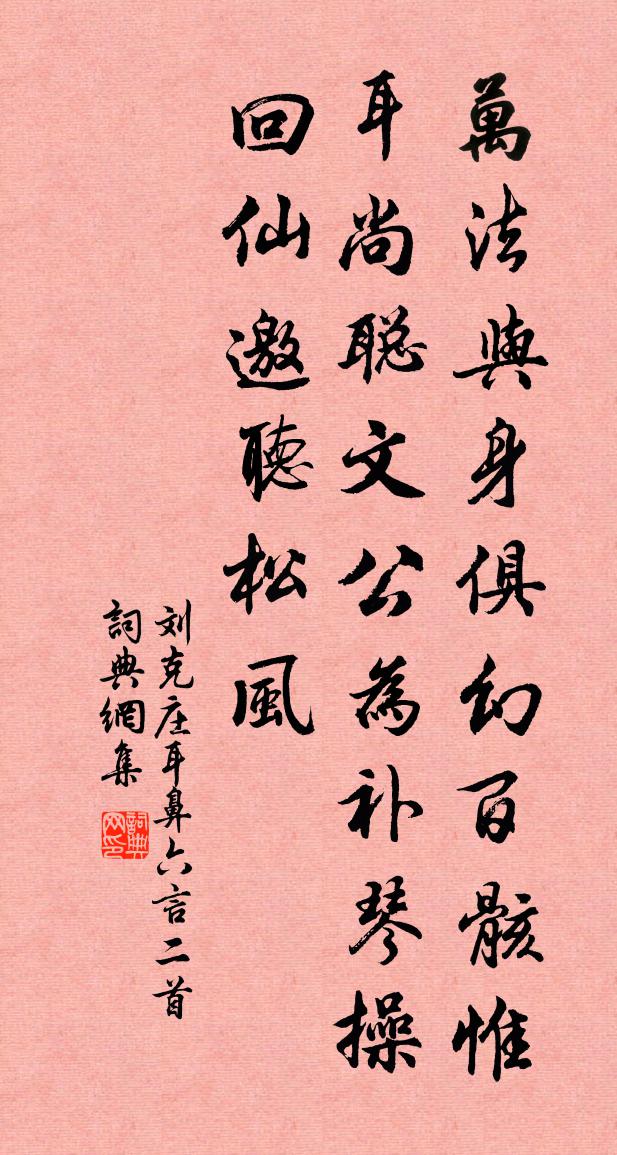 萬法與身俱幻百骸惟
耳尚聪文公為补琴操
回仙邀聽松風
刘克庄耳鼻六言二首
詞典網集
詞典網印